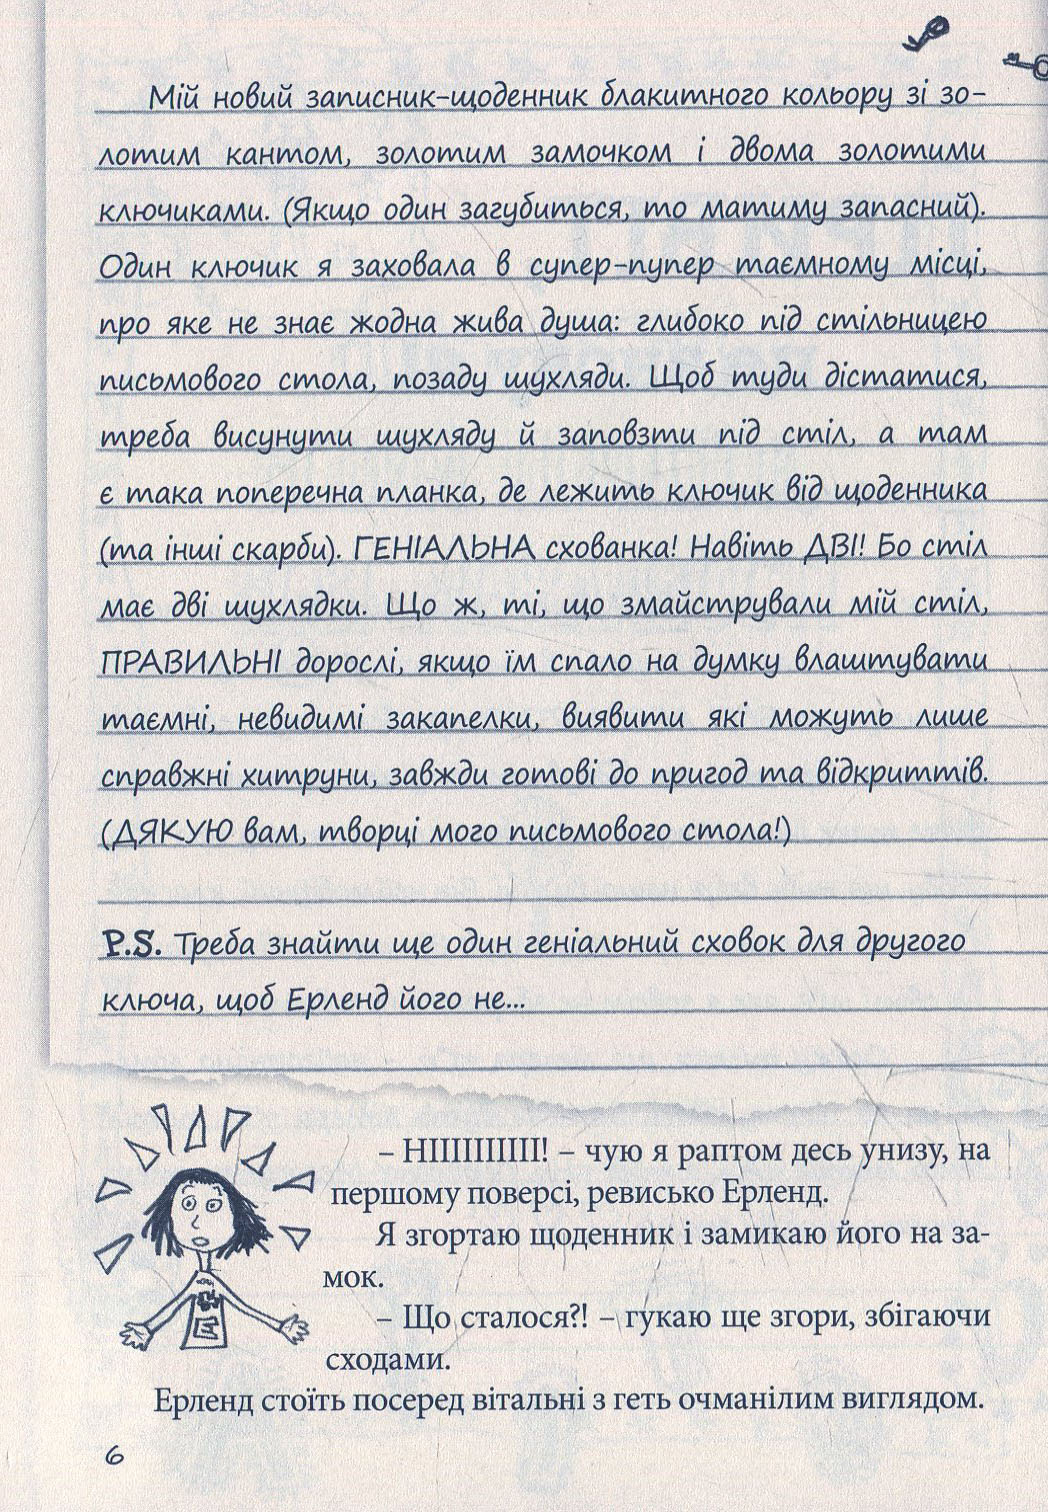 Мій новий записник-щоденник блакитного кольору зі зо-
лотим кантом, золотим замочком і двома золотими
ключиками. (Якщо один загубиться, то матиму запасний).
Один ключик я заховала в супер-пупер таємному місці,
про яке не знає жодна жива душа: глибоко під стільницею
письмового стола, позаду шухляди. Щоб туди дістатися,
треба висунути шухляду й заповзти під стіл, а там
є така поперечна планка, де лежить ключик від щоденника
(та інші скарби). ГЕНІАЛЬНА схованка! Навіть ДВІ! Бо стіл
має дві шухлядки. Що ж, ті, що змайстрували мій стіл,
ПРАВИЛЬНІ дорослі, якщо їм спало на думку влаштувати
таємні, невидимі закапелки, виявити які можуть лише
справжні хитруни, завжди готові до пригод та відкриттів.
(ДЯКУЮ вам, творці мого письмового стола!)
P.S. Треба знайти ще один геніальний сховок для другого
ключа, щоб Ерленд його не...
– НІІІІІІІІІІ! – чую я раптом десь унизу, на
першому поверсі, ревисько Ерленд.
Я згортаю щоденник і замикаю його на за-
мок.
– Що сталося?! – гукаю ще згори, збігаючи
сходами.
Ерленд стоїть посеред вітальні з геть очманілим виглядом.
6